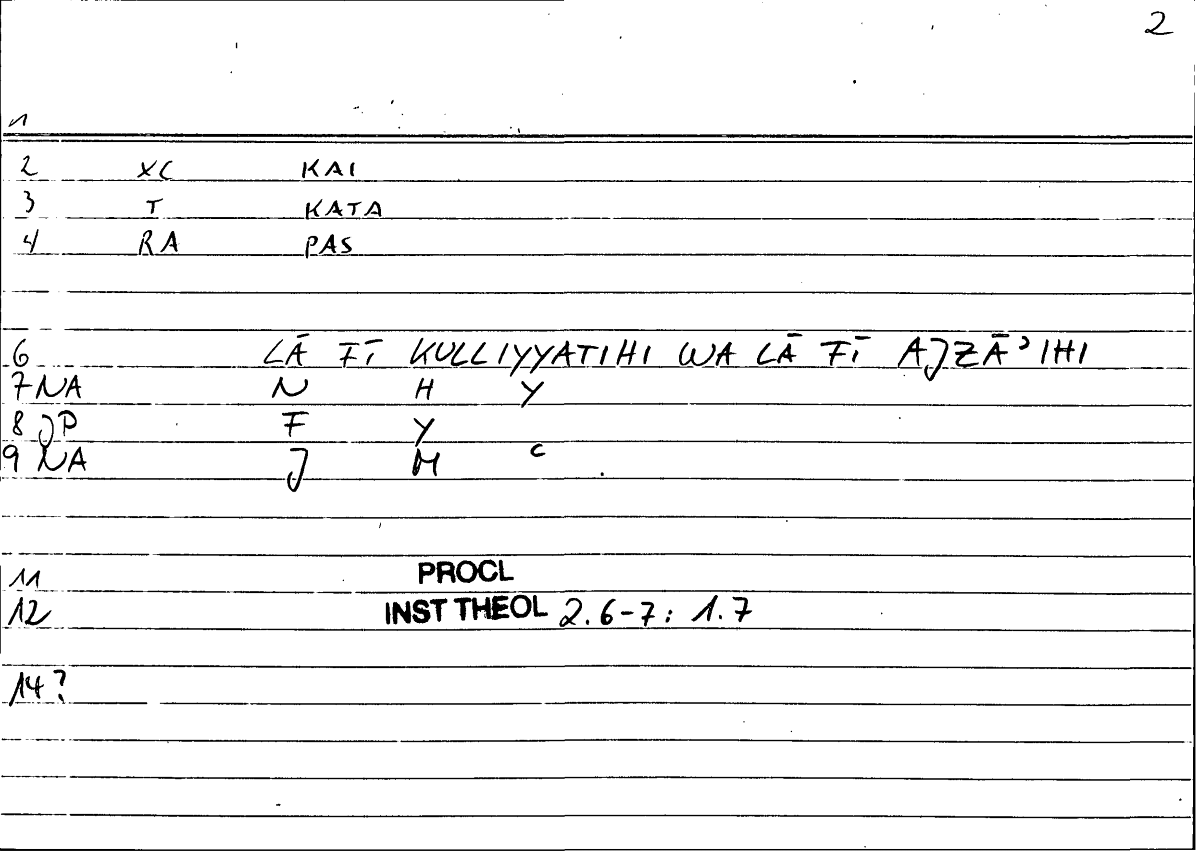 2
1
2 XC KAI
3 T KATA
4 RA PAS
6 LĀ FĪ KULLIYYATIHI WA LĀ FĪ AJZĀʾIHI
7 NA N H Y
8 JP F Y
9 NA J M C
11 PROCL
12 INST THEOL 2.6-7: 1.7
14?